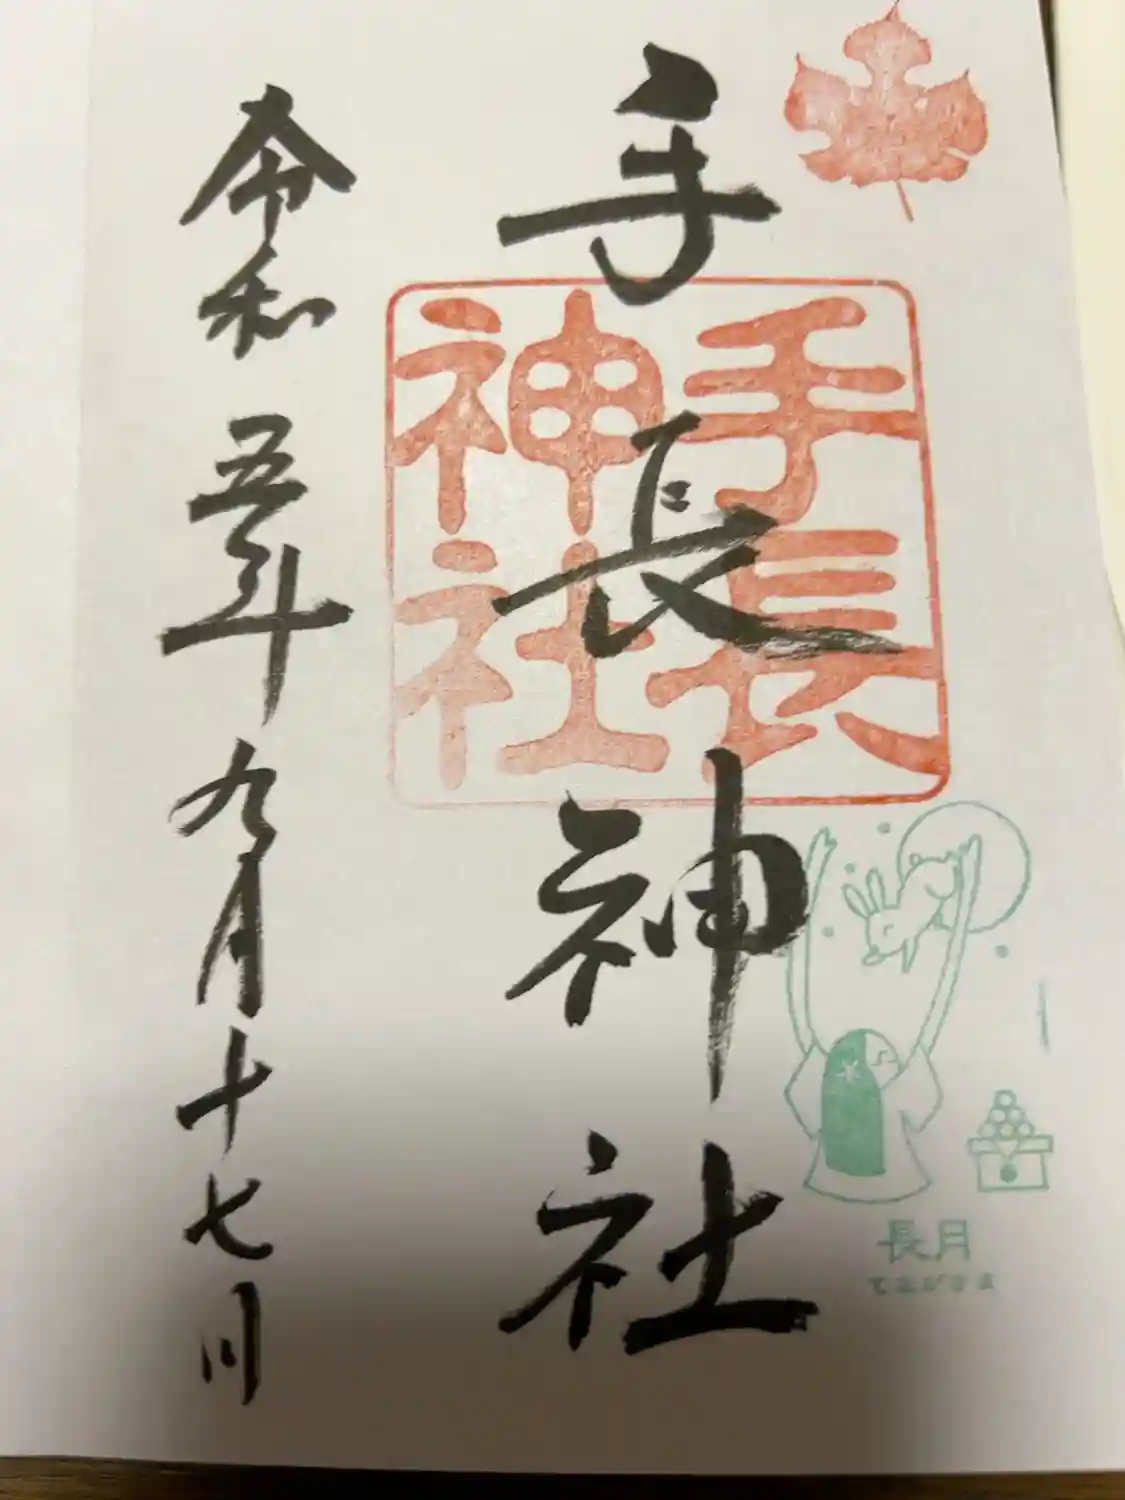 手長神社
手長
神社
長月
てながさま
令和五年九月十七日